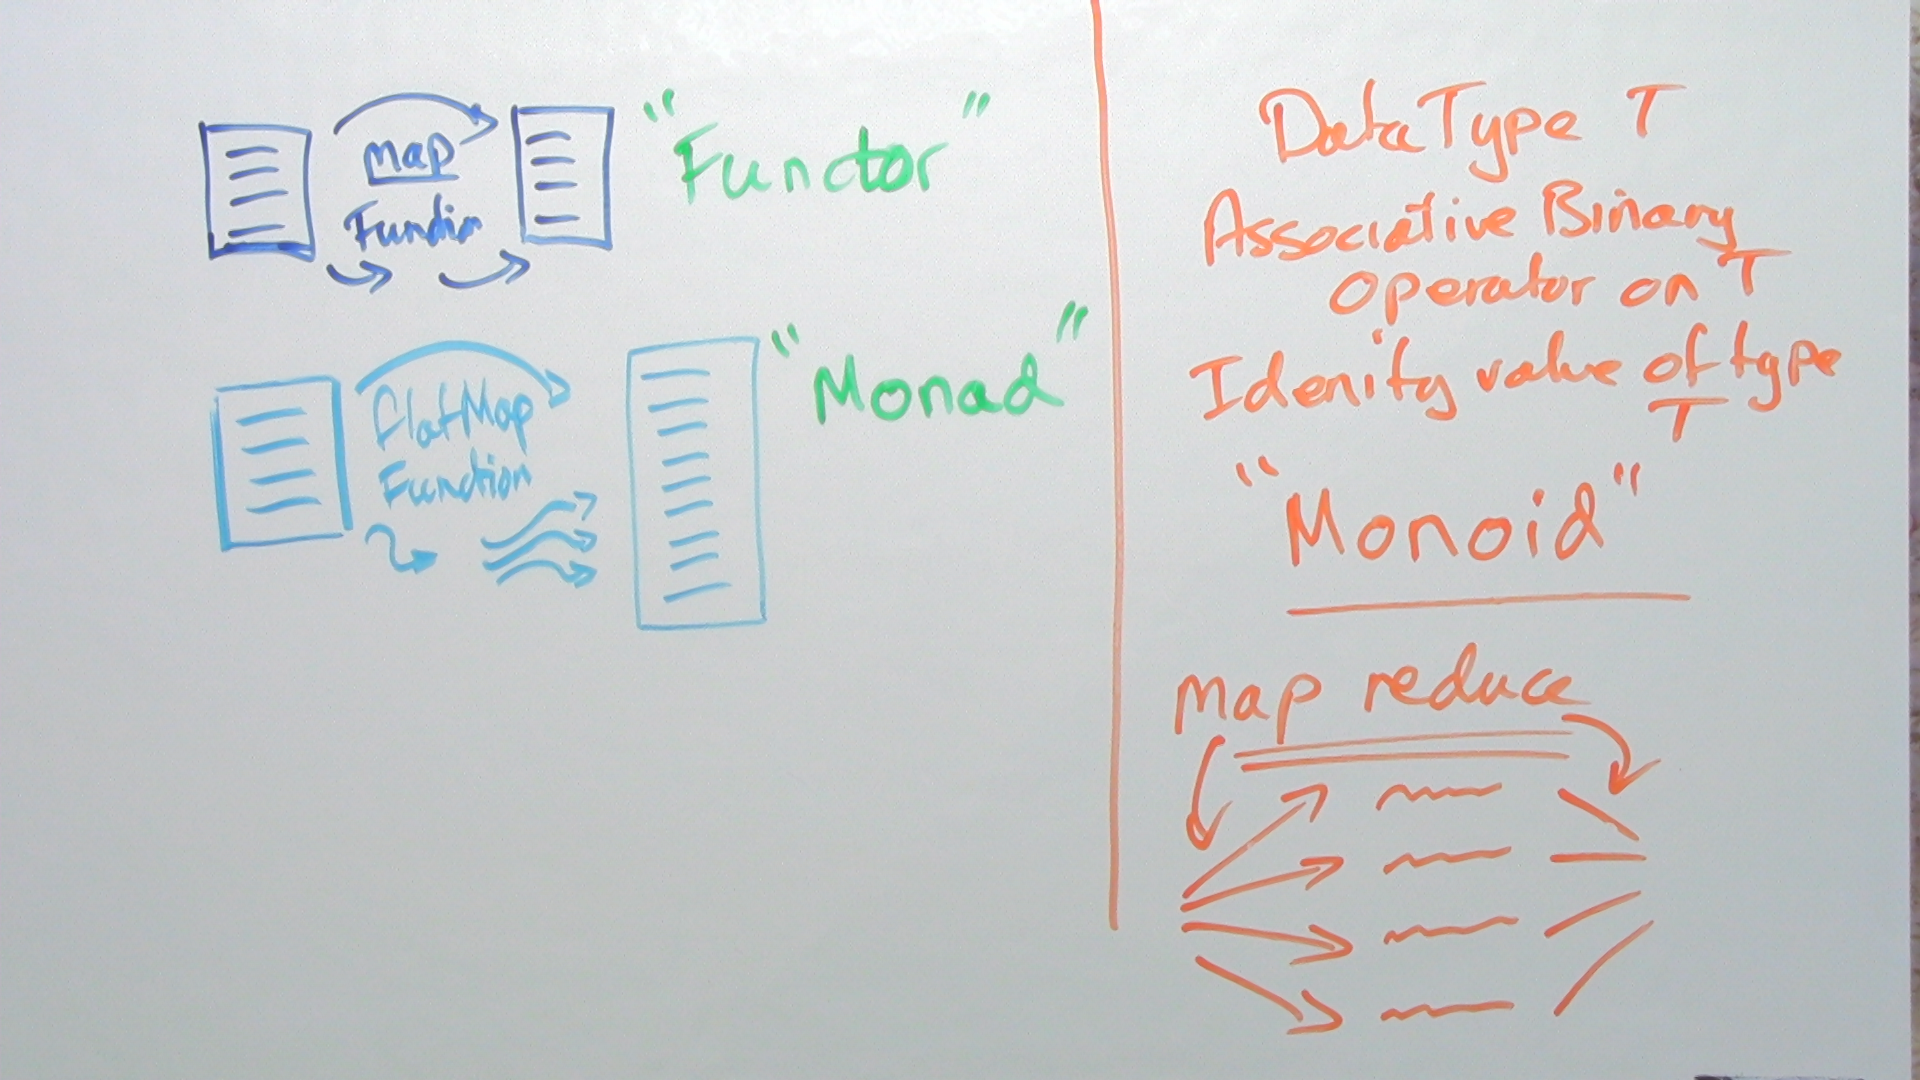 map
Function
"Functor"
FlatMap
Function
"Monad"
DataType T
Associative Binary
Operator on T
Idenity value of type
T
"Monoid"
Map reduce